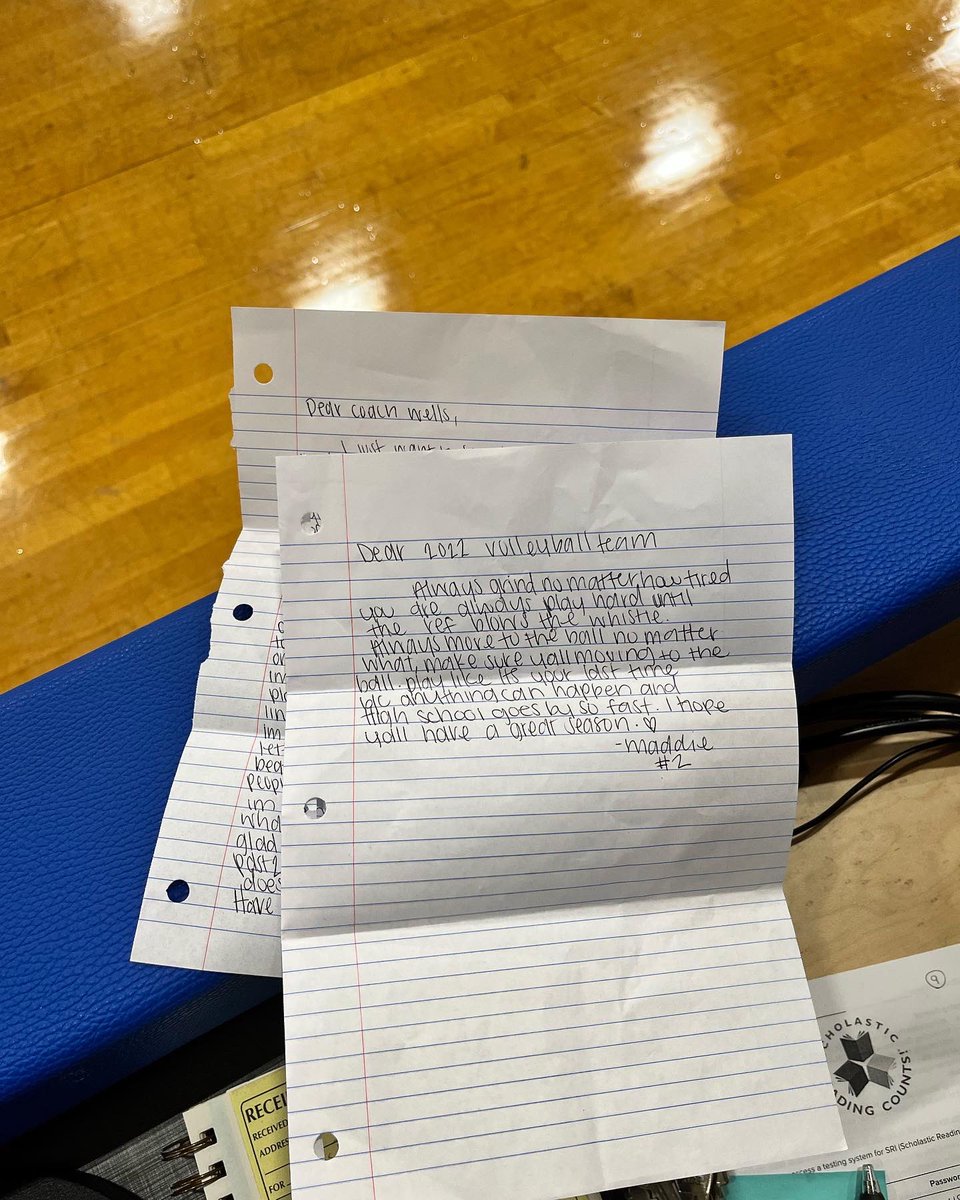 Dear coach wells,
I just want
Dear 2022 volleyball team
Always grind no matter how tired
you are always play hard until
the ref blows the whistle.
Always move to the ball no matter
what, make sure yall moving to the
ball. play like its your last time
b/c anything can happen and
High school goes by so fast. I hope
yall have a great season. ♡
-maddie
#2
im
beg
peop
im
who
glad
past 2
does
Have
RECEI
RECEIVED
ADDRES
FOR
9
SCHOLASTIC
READING COUNTS!
access a testing system for SRI (Scholastic Readin
Passwo